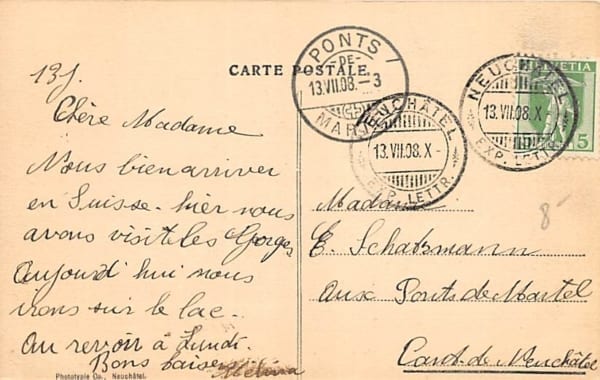 CARTE POSTALE.
PONTS
-DE-
13.VII.08.-3
MAR
NEUCHÂTEL
13.VII.08.X-
EXP. LETTR.
NEUCHÂTEL
13.VII.08.X-
EXP. LETTR.
HELVETIA
5
13 j.
Chère Madame
Nous bien arriver
en Suisse. hier nous
avons visit les Gorges
aujourd'hui nous
irons sur le lac.
au revoir à Lundi.
Bons baisers
Phototypie Co., Neuchâtel.
Madame
E. Schatzmann
aux Ponts de Martel
Cant. de Neuchâtel
8-